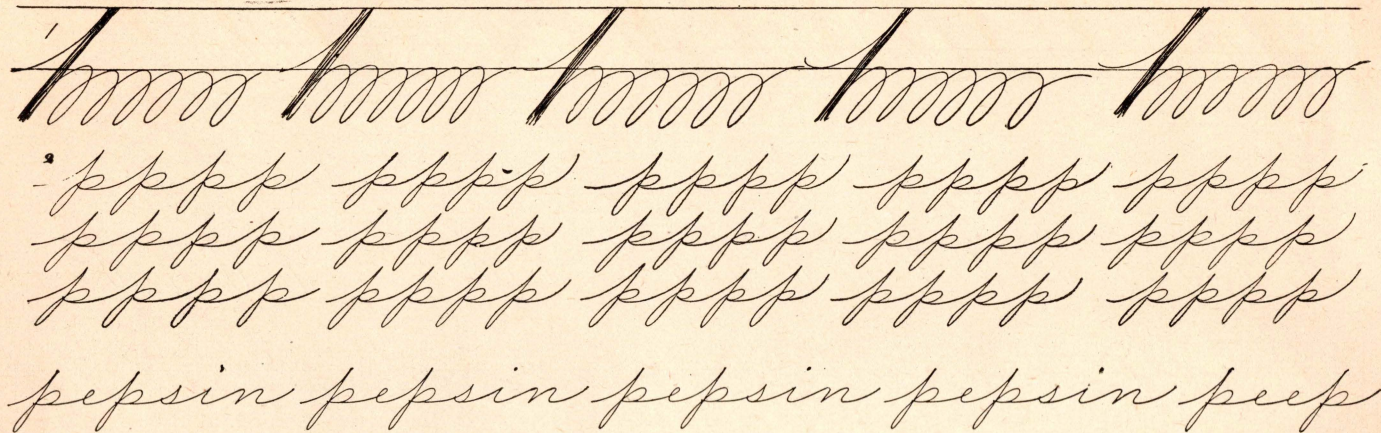 1
2 pppp pppp pppp pppp pppp
pppp pppp pppp pppp pppp
pppp pppp pppp pppp pppp
pepsin pepsin pepsin pepsin peep